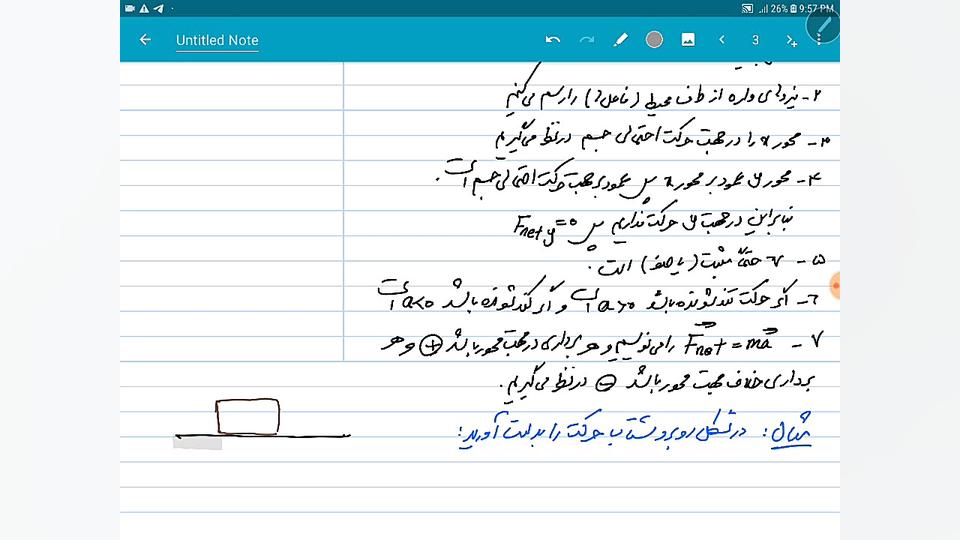 26% 9:57 PM
Untitled Note
3
۲- نیروهای وارده از طرف محیط (عامل) را رسم می‌کنیم
۳- محور x را در جهت حرکت احتمالی جسم در نظر می‌گیریم
۴- محور y عمود بر محور x پس عمود بر جهت حرکت احتمالی جسم است.
بنابراین در جهت y حرکت نداریم پس Fnet y = 0
۵- v حتماً مثبت (یا صفر) است.
۶- اگر حرکت تندشونده باشد a>0 است و اگر کندشونده باشد a<0 است
۷- Fnet = ma را می‌نویسیم و هر برداری در جهت محور باشد ⊕ و هر
برداری خلاف جهت محور باشد ⊖ در نظر می‌گیریم.
مثال: در شکل روبرو شتاب حرکت را بدست آورید: